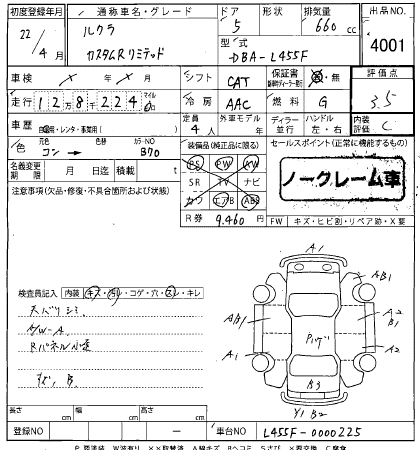 初度登録年月 通称車名・グレード ドア 形状 排気量 出品NO.
22/4月 ルクラ 5 660cc 4001
カスタムRリミテッド 型式 DBA-L455F
車検 ×月× シフト CAT 保証書 有・無 評価点
走行 12万8千224 マイル 冷房 AAC 燃料 G 3.5
車歴 自家用・レンタ・事業用( ) 定員 4人 外車モデル年 ディーラー 並行 ハンドル 左・右 内装評価 C
色 コン→ 色替 カラーNO B70 装備品(純正品に限る) セールスポイント(正常に機能するもの)
名義変更期限 月 日迄 積載 t PS PW AW
SR TV ナビ ノークレーム車
注意事項(欠品・修復・不具合箇所および状態) カワ エアB ABS
R券 9,460円 FW キズ・ヒビ割・リペア跡・X要
A1
検査員記入 内装 キズ・汚レ・コゲ・穴・スレ・キレ
天バリシミ
A/W-A
Rパネル小
キズ、B
AB1
AB1
A1
A2 B1
A2
B3
Y1 B2
長さ cm 幅 cm 高さ cm
登録NO ー 車台NO L455F-0000225